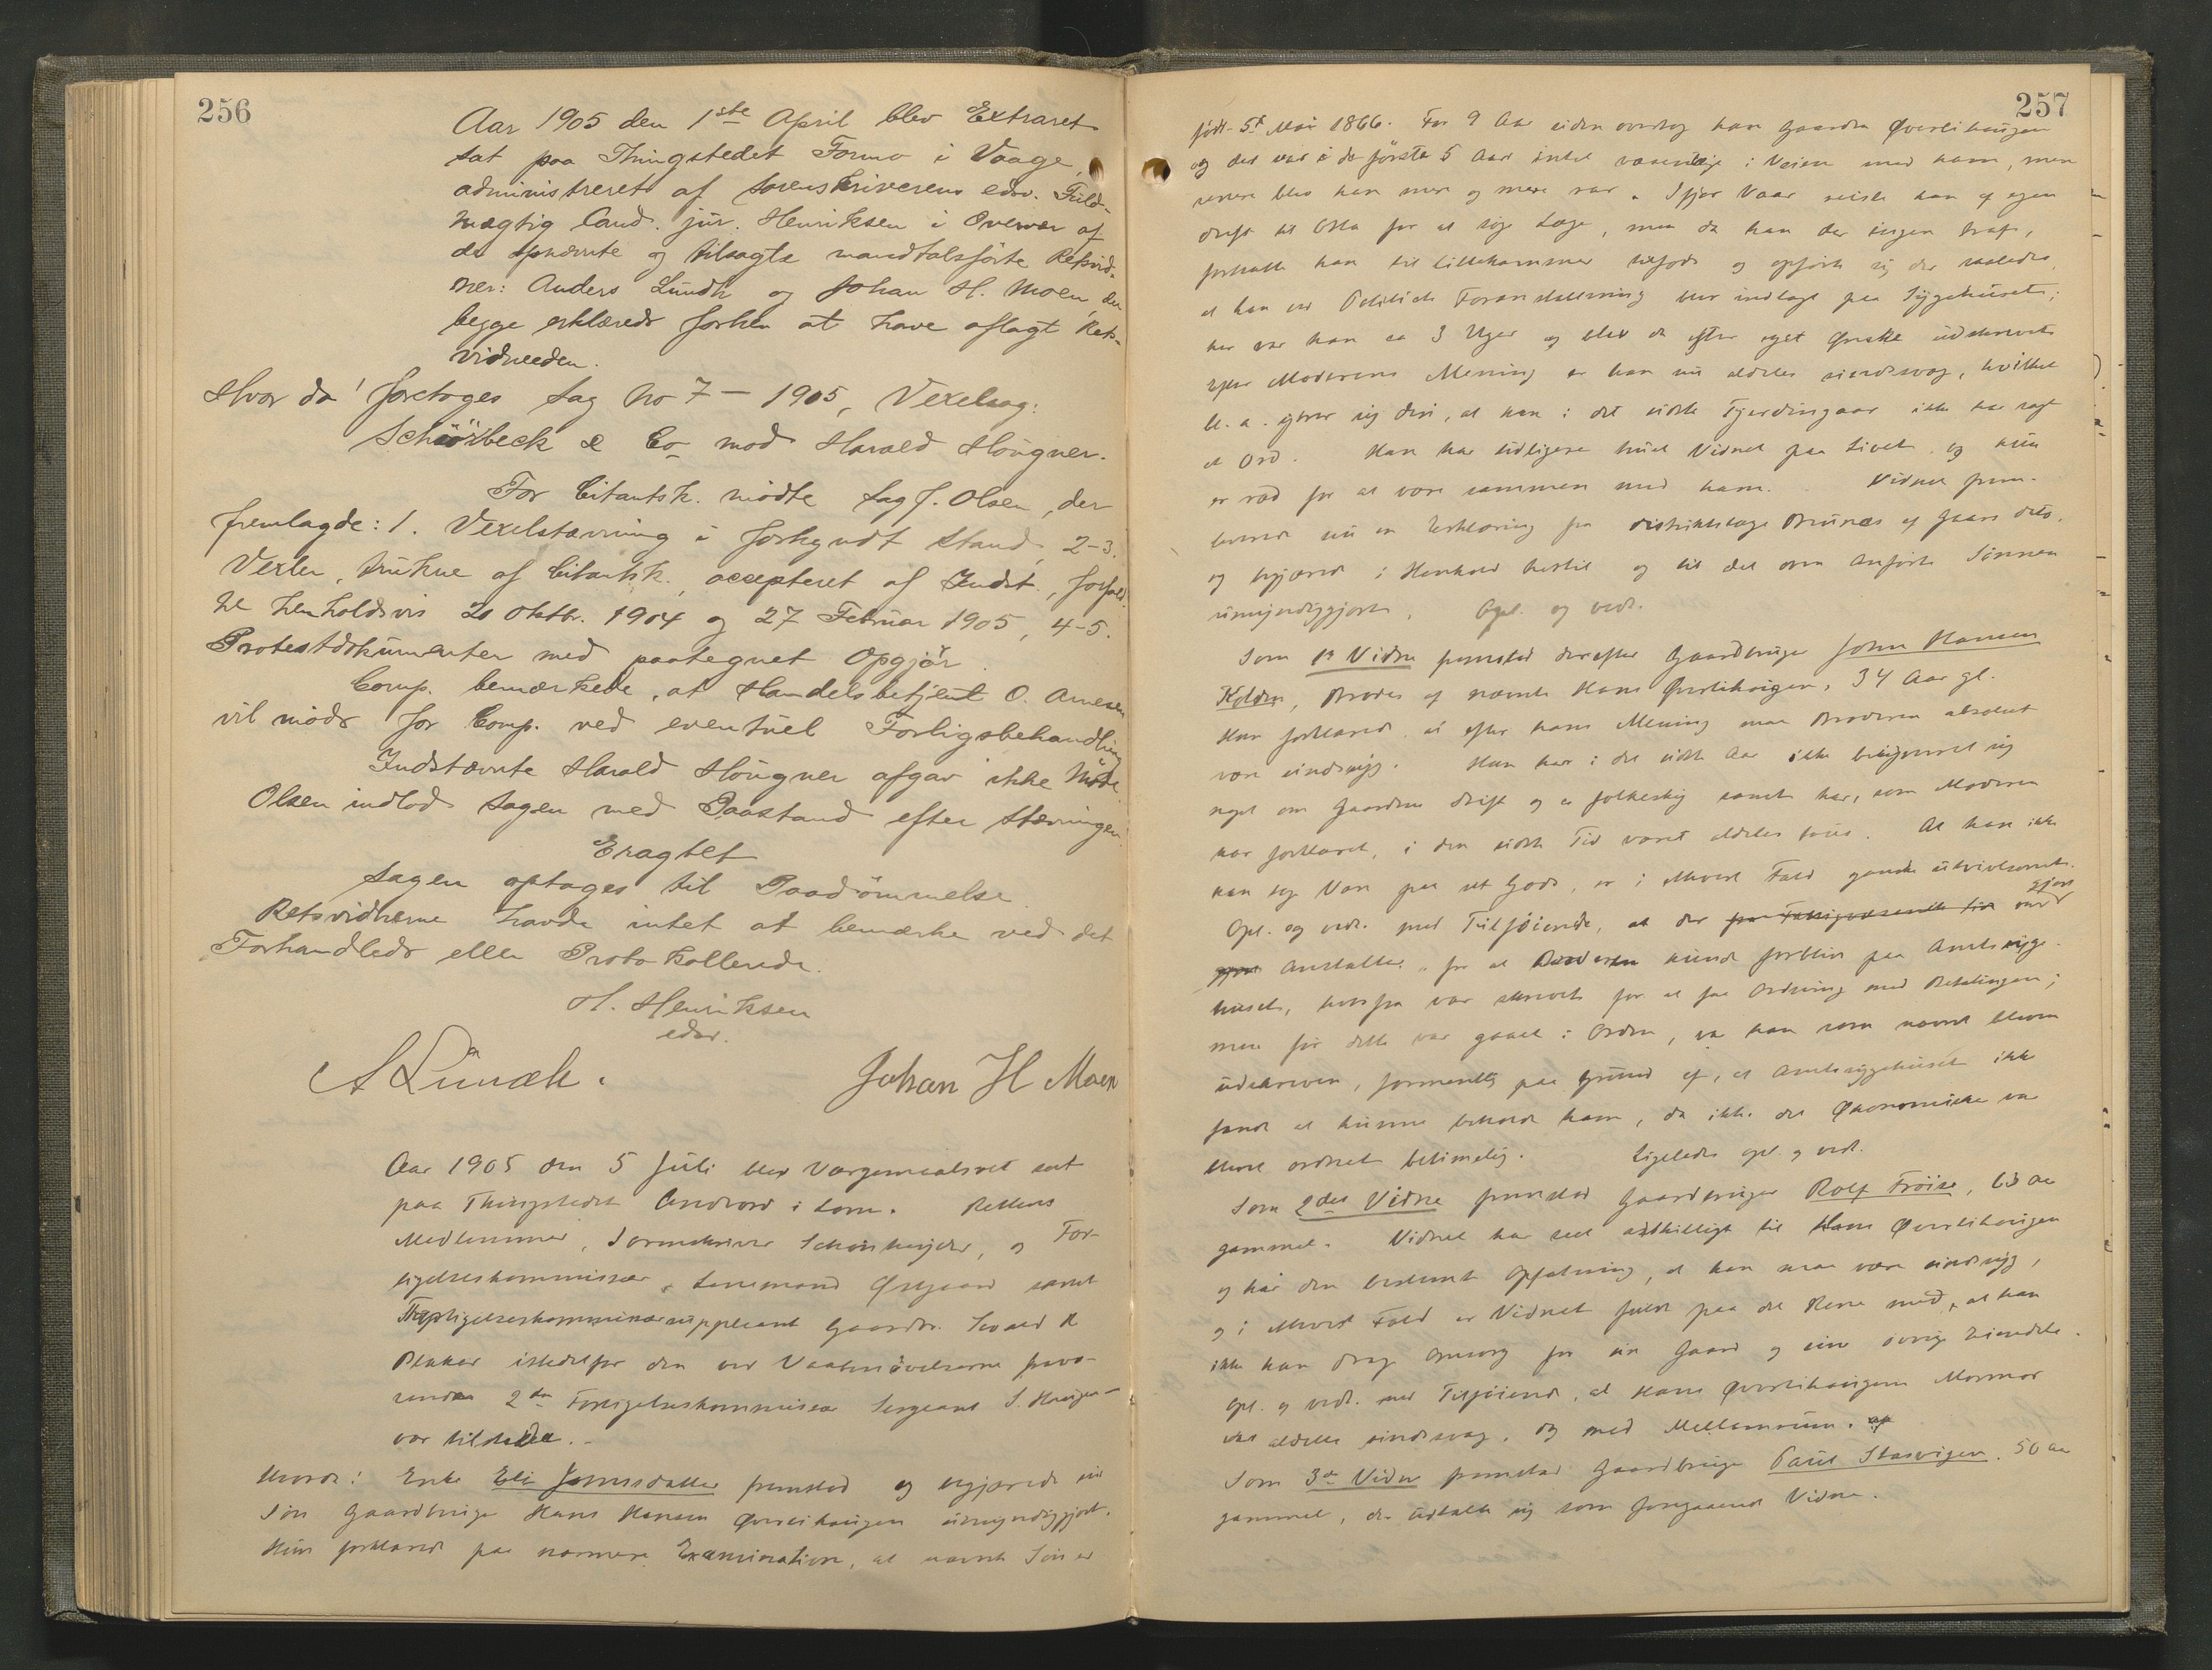 256
Aar 1905 den 1ste April blev Extraret
sat paa Thingstedet Formo i Vaage,
administreret af Sorenskriverens edsv. Fuld-
mægtig Cand. jur. Henriksen i Overvær af
de opnævnte og tilsagte mandtalsførte Retsvid-
ner: Anders Lundh og Johan H. Moen, der
begge erklærede forhen at have aflagt Rets-
vidneeden.
Hvor da! foretoges Sag No 7 – 1905, Vexelsag:
Schiørbeck & Co mod Harald Hougner.
For Citantsk. mødte Sagf. Olsen, der
fremlagde: 1. Vexelstævning i forkyndt Stand, 2-3.
Vexler, trukne af Citantsk., accepteret af Indst., forfald.
ne henholdsvis 20 Oktbr. 1904 og 27 Februar 1905, 4-5.
Protestdokumenter med paategnet Opgjør.
Comp. bemærkede, at Handelsbetjent O. Arnesen
vil møde for Comp. ved eventuel Forligsbehandling
Indstævnte Harald Hougner afgav ikke Møde.
Olsen indlod Sagen med Paastand efter Stævningen.
Eragtet
Sagen optages til Paadømmelse.
Retsvidnerne havde intet at bemærke ved det
Forhandlede eller Protokollerede.
H. Henriksen
edsv.
A Lundh. Johan H Moen
Aar 1905 den 5 Juli blev Værgemaalsret sat
paa Thingstedet Andvord i Lom. Rettens
Medlemmer, Sorenskriver Schønheyder, og For-
ligelseskommissær, Lensmand Øygaard samt
Forligelseskommissærsuppleant Gaardbr. Sevald R
Blakar istedetfor den ved Vaabenøvelserne fravæ-
rende 2den Forligelseskommissær Sergeant S. Haugen
var tilstede.-
Hvorda! Enke Eli Johnsdatter fremstod og begjærede sin
Søn Gaardbruger Hans Hansen Øverlihaugen umyndiggjort.
Hun forklarede paa nærmere Examination, at nævnte Søn er
257
født 5te Mai 1866. For 9 Aar siden overtog han Gaarden Øverlihaugen
og det var i de første 5 Aar intet væsentlige i Veien med ham, men
senere blev han mere og mere rar. Ifjor Vaar reiste han af egen
Drift til Otta for at søge Læge, men da han der ingen traf,
fortsatte han til Lillehammer tilfods og opførte sig der saaledes,
at han ved Politiets Foranstaltning blev indlagt paa Sygehuset;
her var han ca 3 Uger og blev da efter eget Ønske udskrevet.
Efter Moderens Mening er han nu aldeles sindssvag, hvilket
bl. a. ytrer sig deri, at han i det sidste Fjerdingaar ikke har sagt
et Ord. Han har tidligere truet Vidnet paa Livet og hun
er ræd for at være sammen med ham. Vidnet frem-
lagde nu en Erklæring fra Distriktslæge Brunæs af Gaars Dato,
og begjærede i Henhold hertil og til det oven anførte Sønnen
umyndiggjort. Opl. og vedt.
Som 1ste Vidne fremstod derefter Gaardbruger John Hansen
Kolden, Broder af nævnte Hans Øverlihaugen, 34 Aar gl.
Han forklarede, at efter hans Mening maa Broderen absolut
være sindssyg. Han har i det sidste Aar ikke bekymret sig
noget om Gaardens Drift og er folkesky samt har, som Moderen
har forklaret, i den sidste Tid været aldeles taus. At han ikke
kan tage Vare paa sit Gods, er i ethvert Fald ganske utvivlsomt.
Opl. og vedt. med Tilføiende, at der fra Fattigvæsenets Side var gjort
Anstalter for at Broderen kunde forblive paa Amtssyge-
huset, hvorfra var skrevet for at faa Ordning med Betalingen;
men før dette var gaaet i Orden, var han som nævnt bleven
udskreven, formentlig paa Grund af, at Amtssygehuset ikke
fandt at kunne beholde ham, da ikke det Økonomiske var
blevet ordnet betimelig. Ligeledes opl. og vedt.
Som 2det Vidne fremstod Gaardbruger Rolf Frøise, 63 Aar
gammel. Vidnet har seet adskilligt til Hans Øverlihaugen
og har den bestemte Opfatning, at han maa være sindssyg,
og i ethvert Fald er Vidnet fuldt paa det Rene med, at han
ikke kan drage Omsorg for sin Gaard og sine øvrige Eiendele.
Opl. og vedt. med Tilføiende, at Hans Øverlihaugens Mormor
var aldeles sindssvag, dog med Mellemrum.
Som 3die Vidne fremstod Gaardbruger Paul Stasvigen, 50 Aar
gammel, der udtalte sig som foregaaende Vidne.